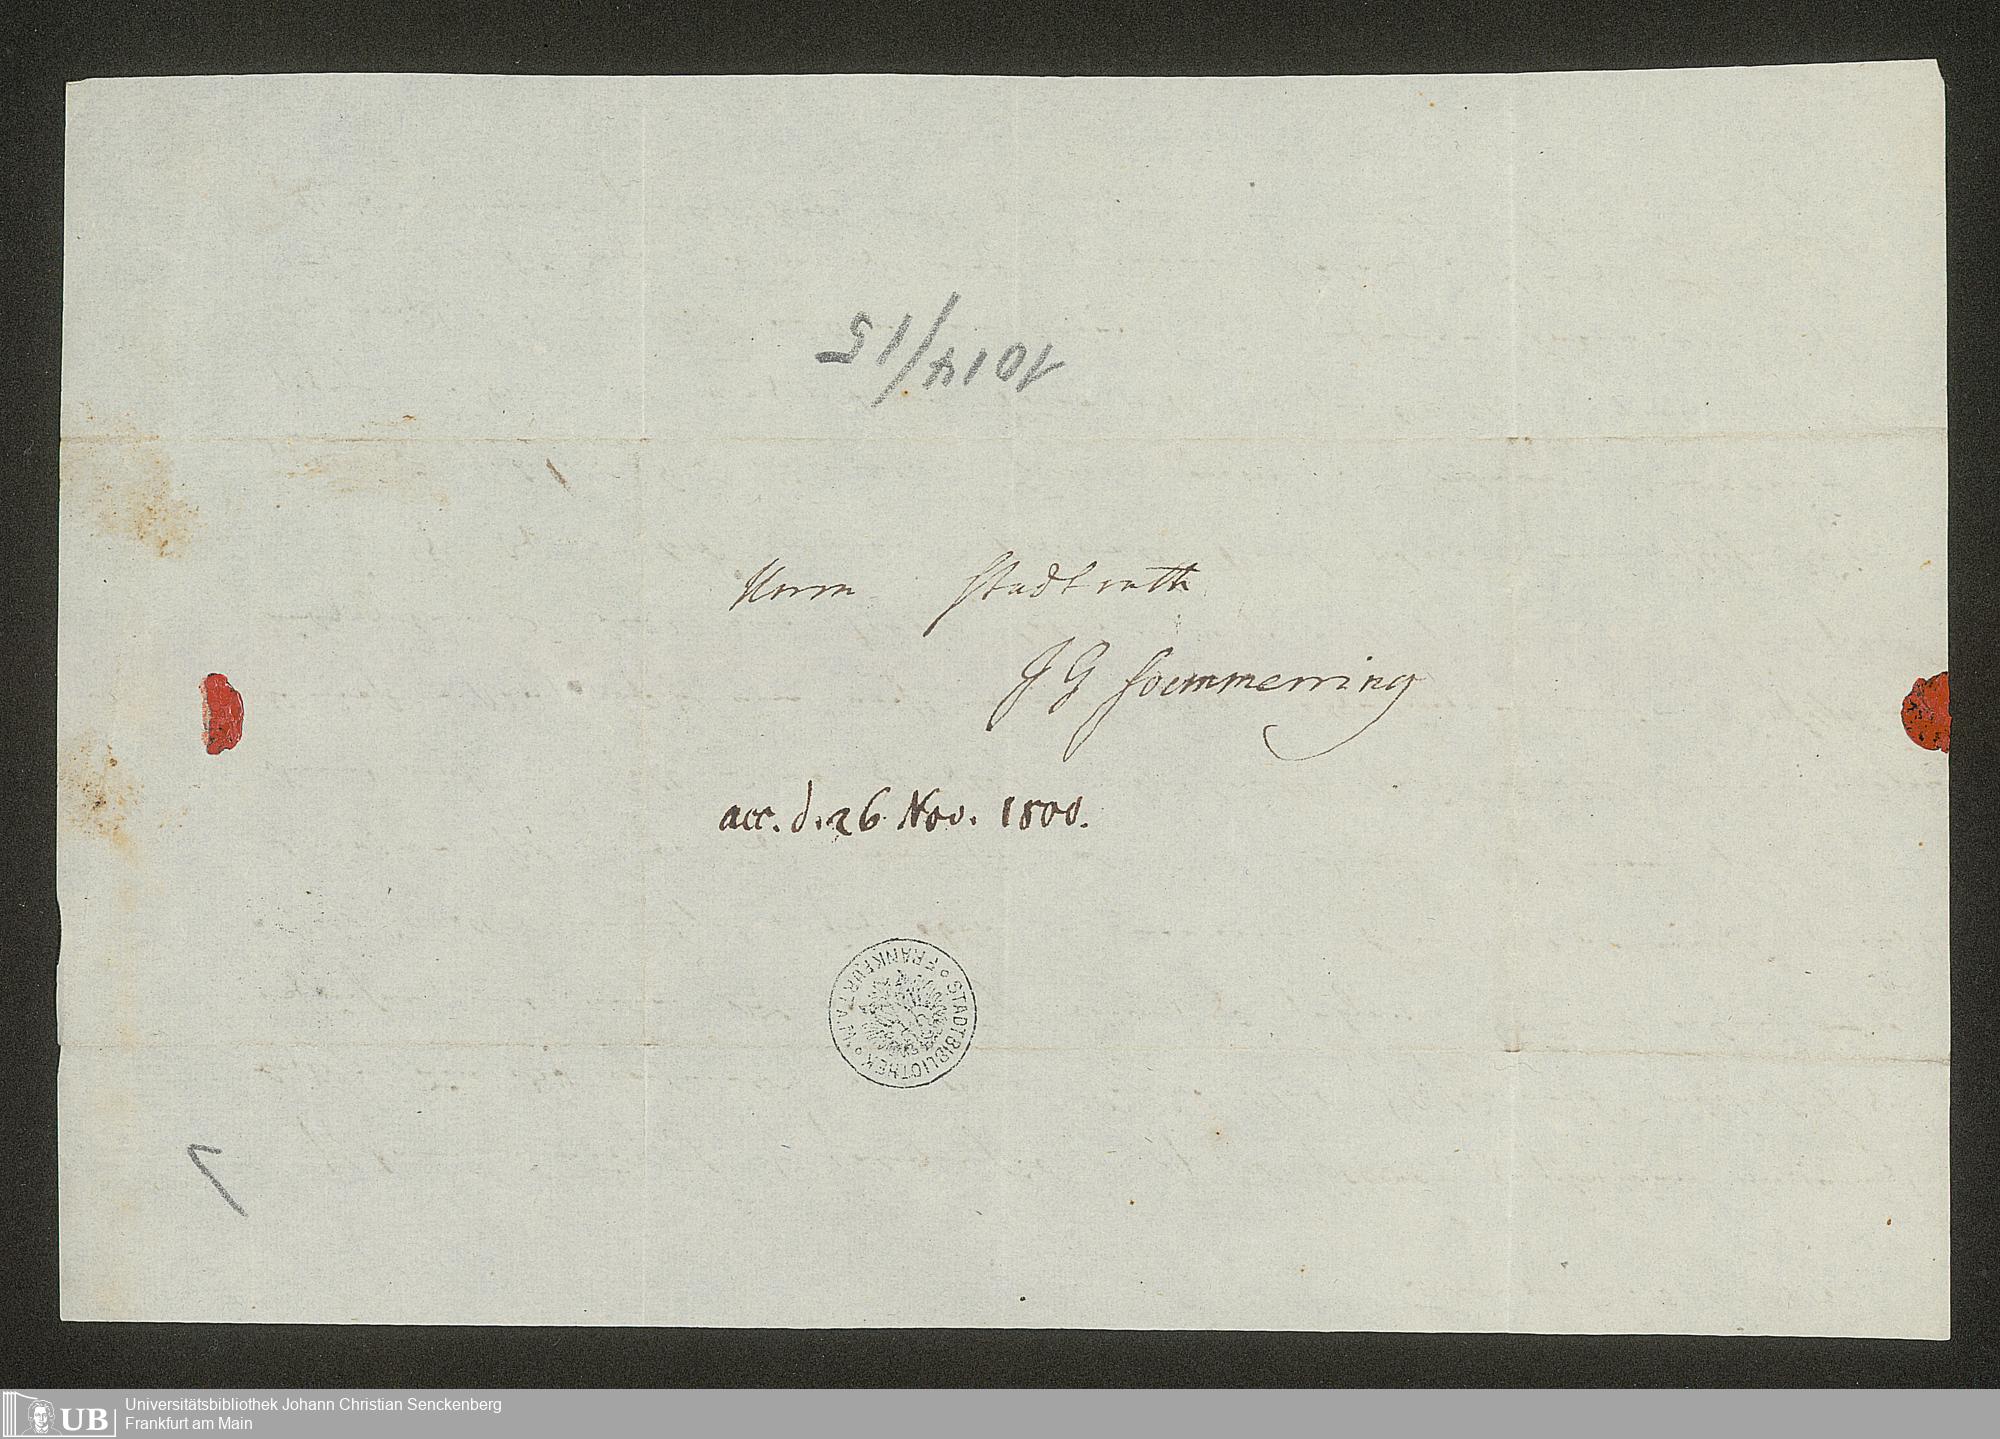 1014/15
Herrn Stadtrath
J G Soemmerring
acc. d. 26 Nov. 1800.
STADTBIBLIOTHEK
FRANKFURT A. M.
UB
Universitätsbibliothek Johann Christian Senckenberg
Frankfurt am Main